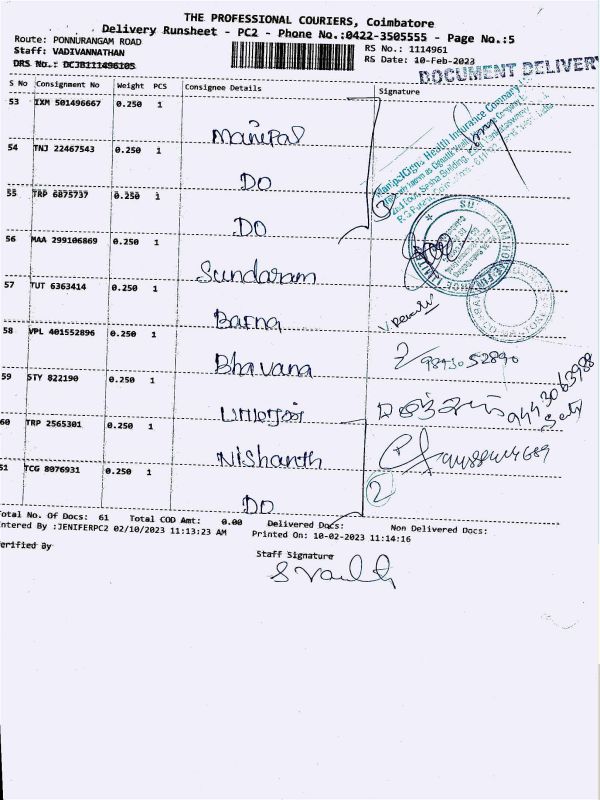 THE PROFESSIONAL COURIERS, Coimbatore
Delivery Runsheet - PC2 - Phone No.:0422-3505555 - Page No.:5
Route: PONNURANGAM ROAD
RS No.: 1114961
Staff: VADIVANNATHAN
RS Date: 10-Feb-2023
DRS No.: DCJB111496105
DOCUMENT DELIVERY
S No Consignment No Weight PCS Consignee Details Signature
53 IXM 501496667 0.250 1 Manipal
54 TNJ 22467543 0.250 1 DO
55 TRP 6875737 0.250 1 DO
56 MAA 299106869 0.250 1 Sundaram
57 TUT 6363414 0.250 1 Barna
58 VPL 401552896 0.250 1 Bhavana
59 STY 822190 0.250 1
60 TRP 2565301 0.250 1 Nishanth
61 TCG 8076931 0.250 1 DO
ManipalCigna Health Insurance Company
2nd Floor, Sesha Building,
9443063988
2
Total No. Of Docs: 61 Total COD Amt: 0.00 Delivered Docs: Non Delivered Docs:
Entered By :JENIFERPC2 02/10/2023 11:13:23 AM Printed On: 10-02-2023 11:14:16
Verified By
Staff Signature